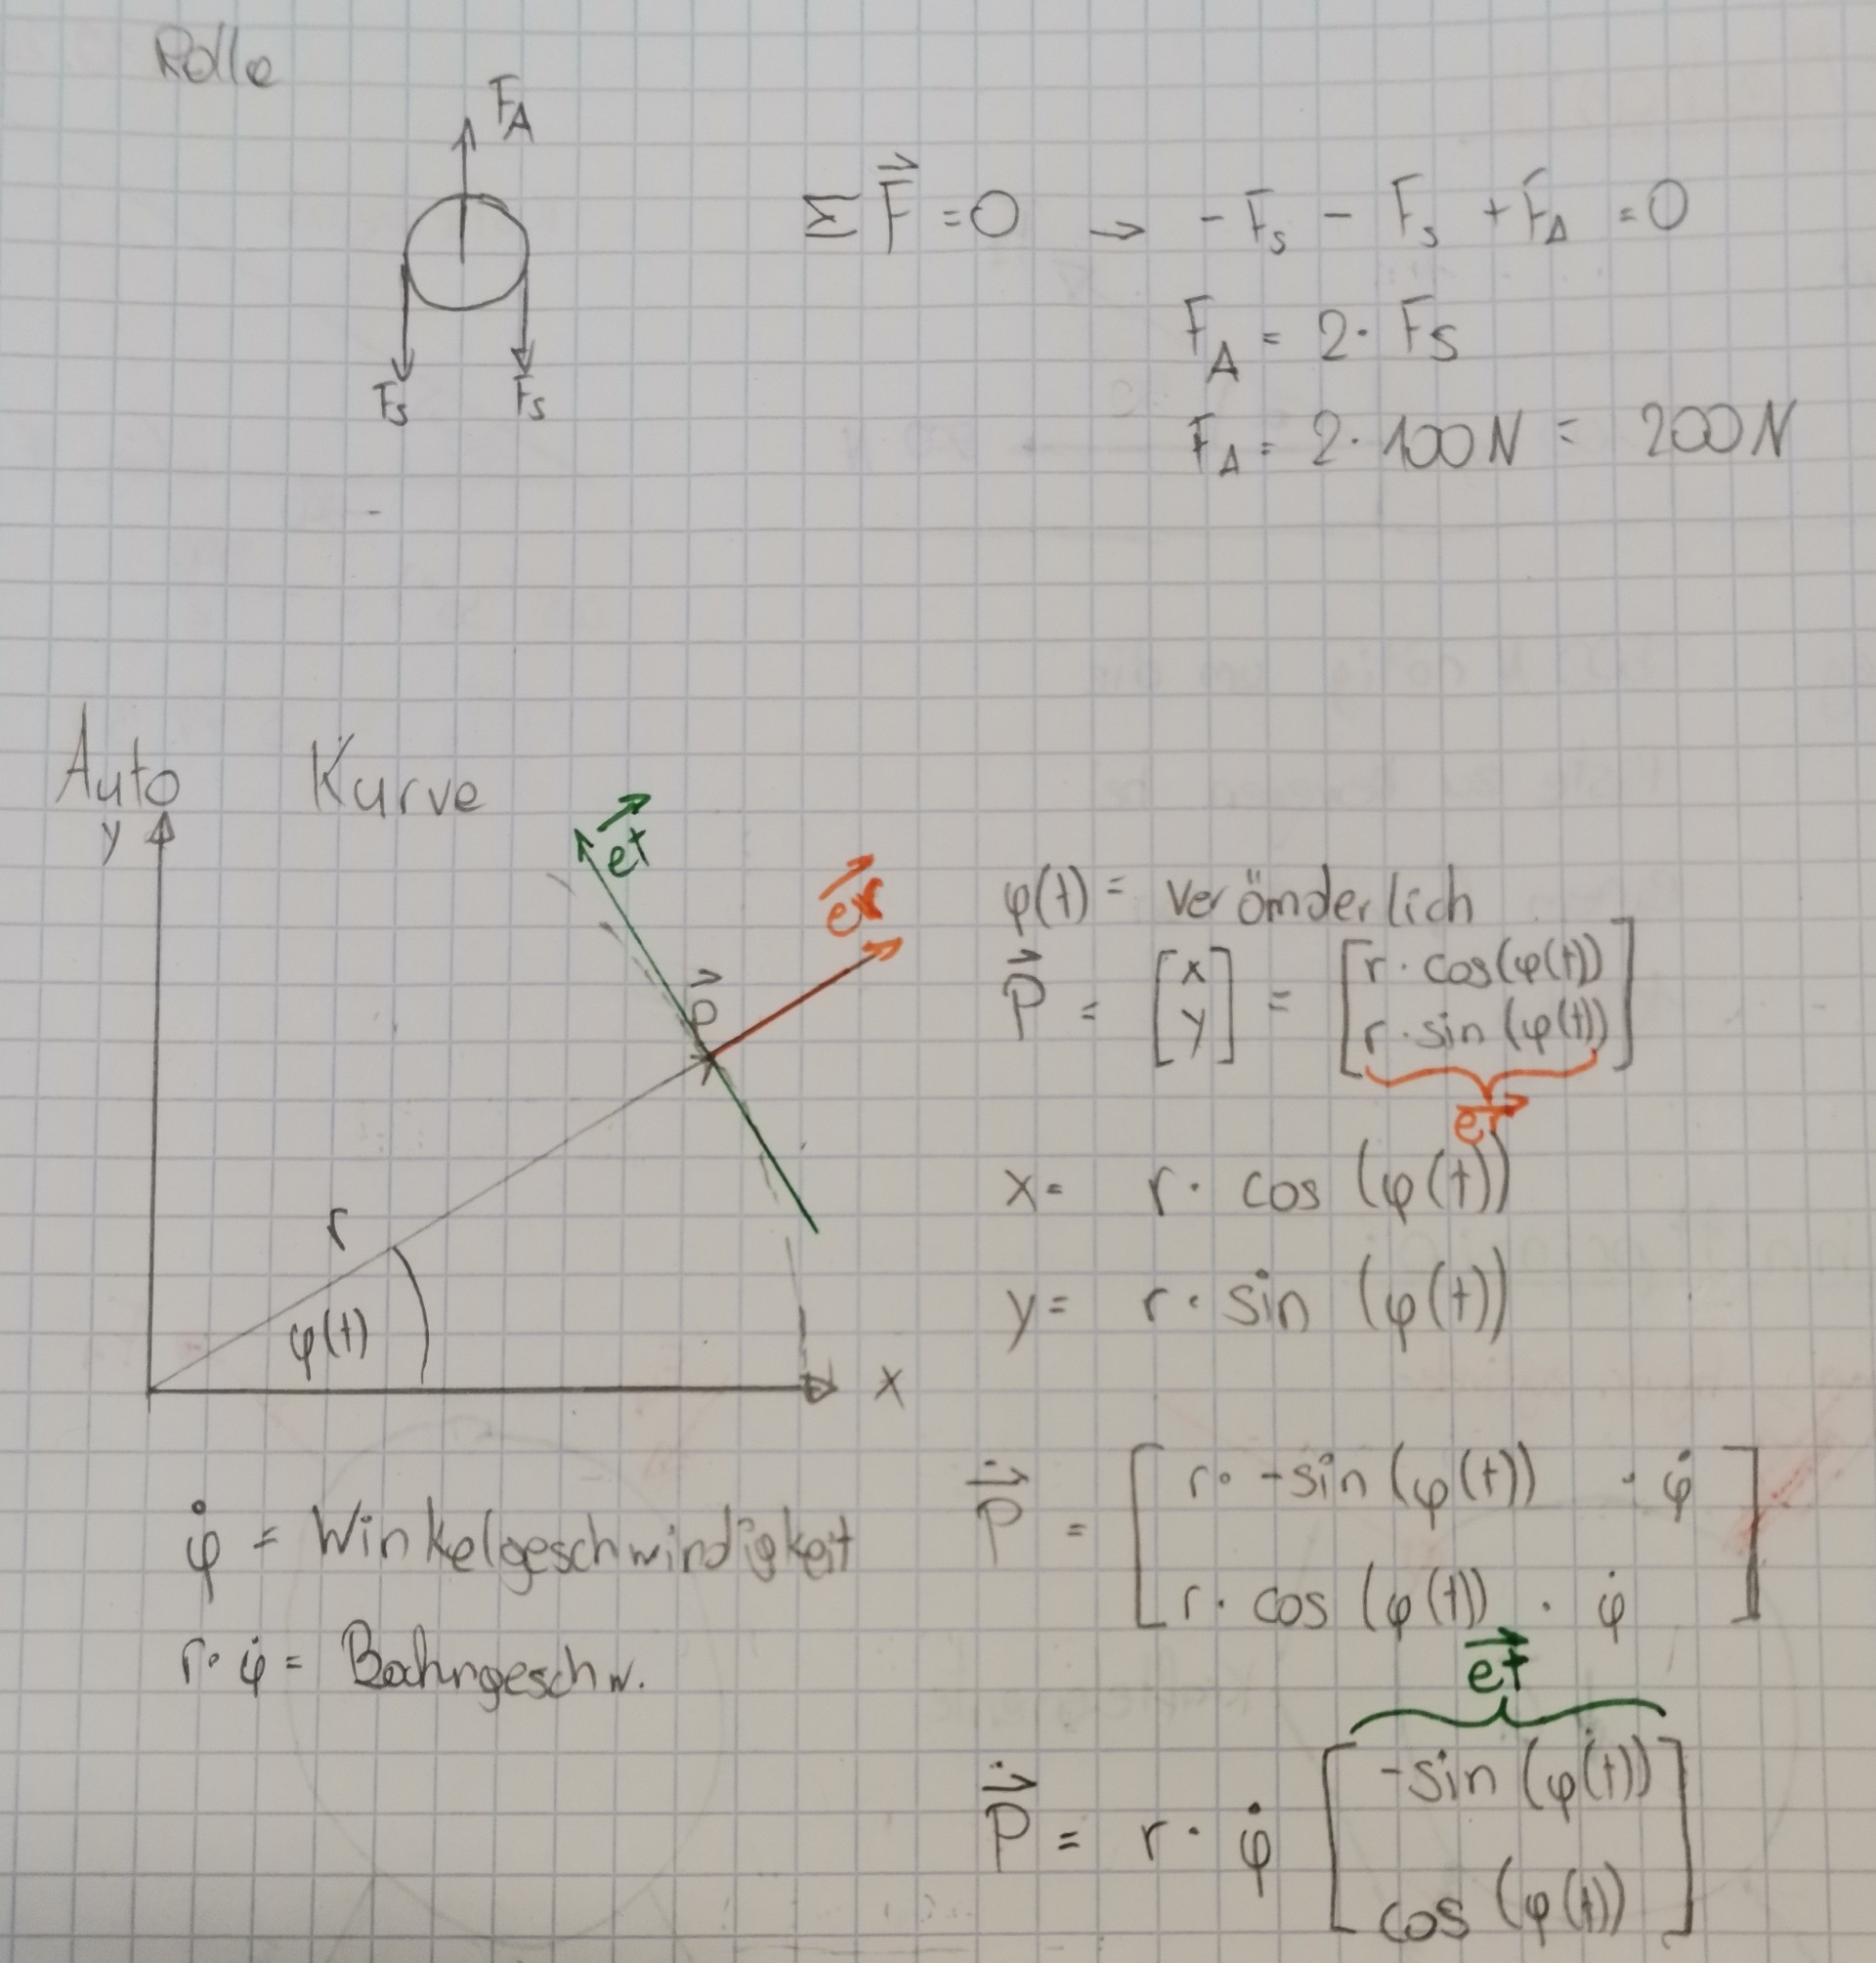 Rolle
F_A
F_s F_s
Σ F⃗ = 0 → - F_s - F_s + F_A = 0
F_A = 2 · F_s
F_A = 2 · 100 N = 200 N
Auto Kurve
y
e⃗t
e⃗r
P⃗
r
φ(t)
x
φ(t) = verömderlich
P⃗ = [x y] = [r · cos(φ(t)) r · sin(φ(t))]
e⃗r
x = r · cos (φ(t))
y = r · sin (φ(t))
φ̇ = Winkelgeschwindigkeit
r · φ̇ = Bahngeschw.
P⃗̇ = [r · -sin (φ(t)) · φ̇
r · cos (φ(t)) · φ̇]
e⃗t
P⃗̇ = r · φ̇ [-sin (φ(t))
cos (φ(t))]